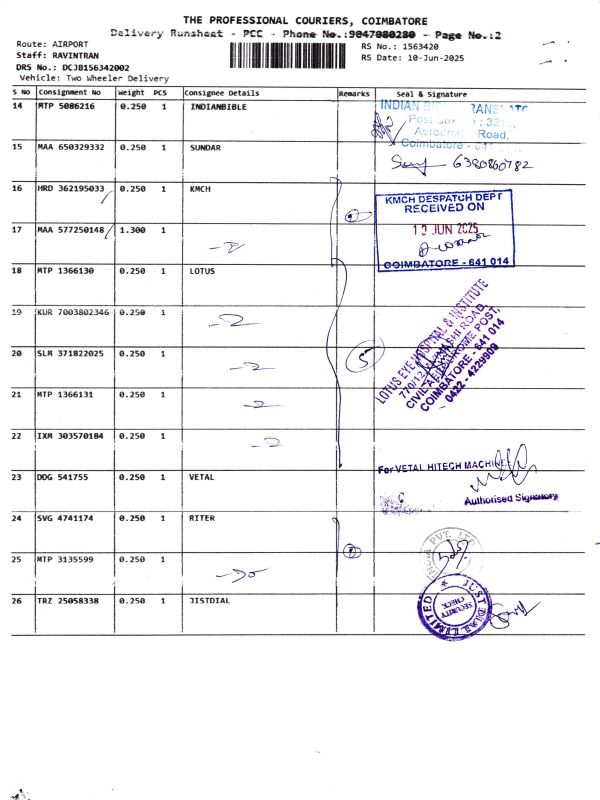 THE PROFESSIONAL COURIERS, COIMBATORE
Delivery Runsheet - PCC - Phone No.:9047080280 - Page No.:2
Route: AIRPORT RS No.: 1563420
Staff: RAVINTRAN RS Date: 10-Jun-2025
DRS No.: DCJB156342002
Vehicle: Two Wheeler Delivery
S No Consignment No Weight PCS Consignee Details Remarks Seal & Signature
14 MTP 5086216 0.250 1 INDIANBIBLE
INDIAN
Post Box
Aerodrome Road,
Coimbatore -
15 MAA 650329332 0.250 1 SUNDAR
6380860782
16 HRD 362195033 0.250 1 KMCH
KMCH DESPATCH DEPT
RECEIVED ON
10 JUN 2025
COIMBATORE - 641 014
17 MAA 577250148 1.300 1
18 MTP 1366130 0.250 1 LOTUS
LOTUS EYE HOSPITAL & INSTITUTE
770/12, AVINASHI ROAD,
CIVIL AERODROME POST,
COIMBATORE - 641 014
0422 - 4229909
19 KUR 7003802346 0.250 1
20 SLM 371822025 0.250 1
5
21 MTP 1366131 0.250 1
22 IXM 303570184 0.250 1
23 DDG 541755 0.250 1 VETAL
For VETAL HITECH MACHINE
Authorised Signatory
24 SVG 4741174 0.250 1 RITER
25 MTP 3135599 0.250 1
26 TRZ 25058338 0.250 1 JISTDIAL
JUST DIAL LIMITED
SECURITY
CHECK